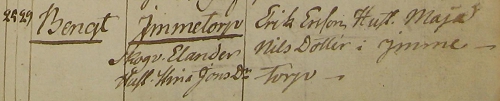 22 29 Bengt Jimmetorp Erik Ersson Hust. Maja
Skogv. Elander Nils Dotter i Jimme -
Hust. Stina Jons Dr torp -